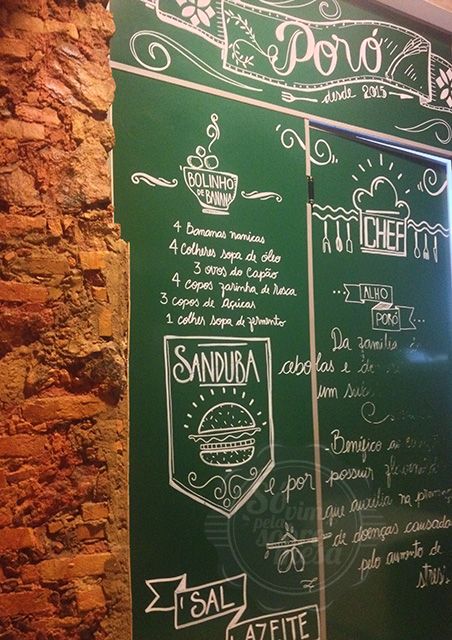 Poró
desde 2015
BOLINHO
DE BANANA
4 Bananas nanicas
4 Colheres sopa de óleo
3 ovos do Capão
4 copos farinha de rosca
3 copos de Açúcas
1 colhes sopa de fermento
SANDUBA
SAL
AZEITE
CHEF
ALHO
PORÓ
Da família
cebolas e
um
Benéfico ao
e por possuir
que auxilia na
de doenças causada
pelo aumento de
stres
Só
vim
pela
sobremesa